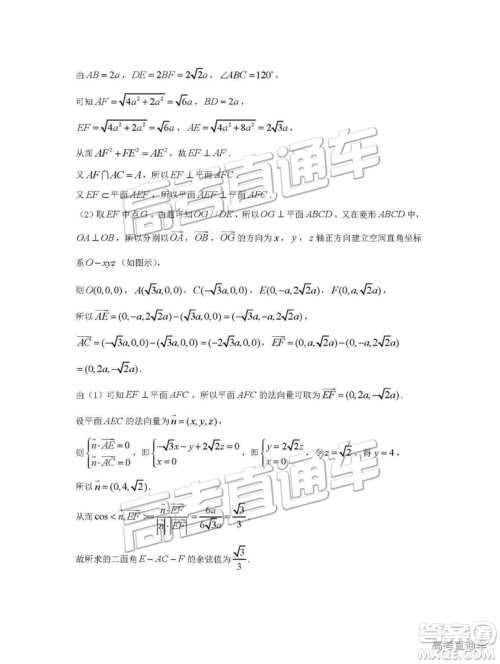 由 AB=2a，DE=2BF=2√2a，∠ABC=120°，
可知 AF=√(4a²+2a²)=√6a，BD=2a，
EF=√(4a²+2a²)=√6a，AE=√(4a²+8a²)=2√3a，
从而 AF²+FE²=AE²，故 EF⊥AF．
又 AF∩AC=A，所以 EF⊥平面 AFC．
又 EF⊂平面 AEF，所以平面 AEF⊥平面 AFC．
（2）取 EF 中点 G，由题可知 OG∥DE，所以 OG⊥平面 ABCD，又在菱形 ABCD 中，
OA⊥OB，所以分别以 OA→，OB→，OG→ 的方向为 x，y，z 轴正方向建立空间直角坐标
系 O−xyz（如图示），
则 O(0,0,0)，A(√3a,0,0)，C(−√3a,0,0)，E(0,−a,2√2a)，F(0,a,√2a)，
所以 AE→=(0,−a,2√2a)−(√3a,0,0)=(−√3a,−a,2√2a)，
AC→=(−√3a,0,0)−(√3a,0,0)=(−2√3a,0,0)，EF→=(0,a,√2a)−(0,−a,2√2a)
=(0,2a,−√2a)．
由（1）可知 EF⊥平面 AFC，所以平面 AFC 的法向量可取为 EF→=(0,2a,−√2a)．
设平面 AEC 的法向量为 n→=(x,y,z)，
则 {n→·AE→=0, n→·AC→=0，即 {−√3x−y+2√2z=0, x=0，即 {y=2√2z, x=0，令 z=√2，得 y=4，
所以 n→=(0,4,√2)．
从而 cos<n→,EF→>=n→·EF→/(|n→|·|EF→|)=6a/(6√3a)=√3/3．
故所求的二面角 E−AC−F 的余弦值为 √3/3．
高考直通车
高考直通车
高考直通车